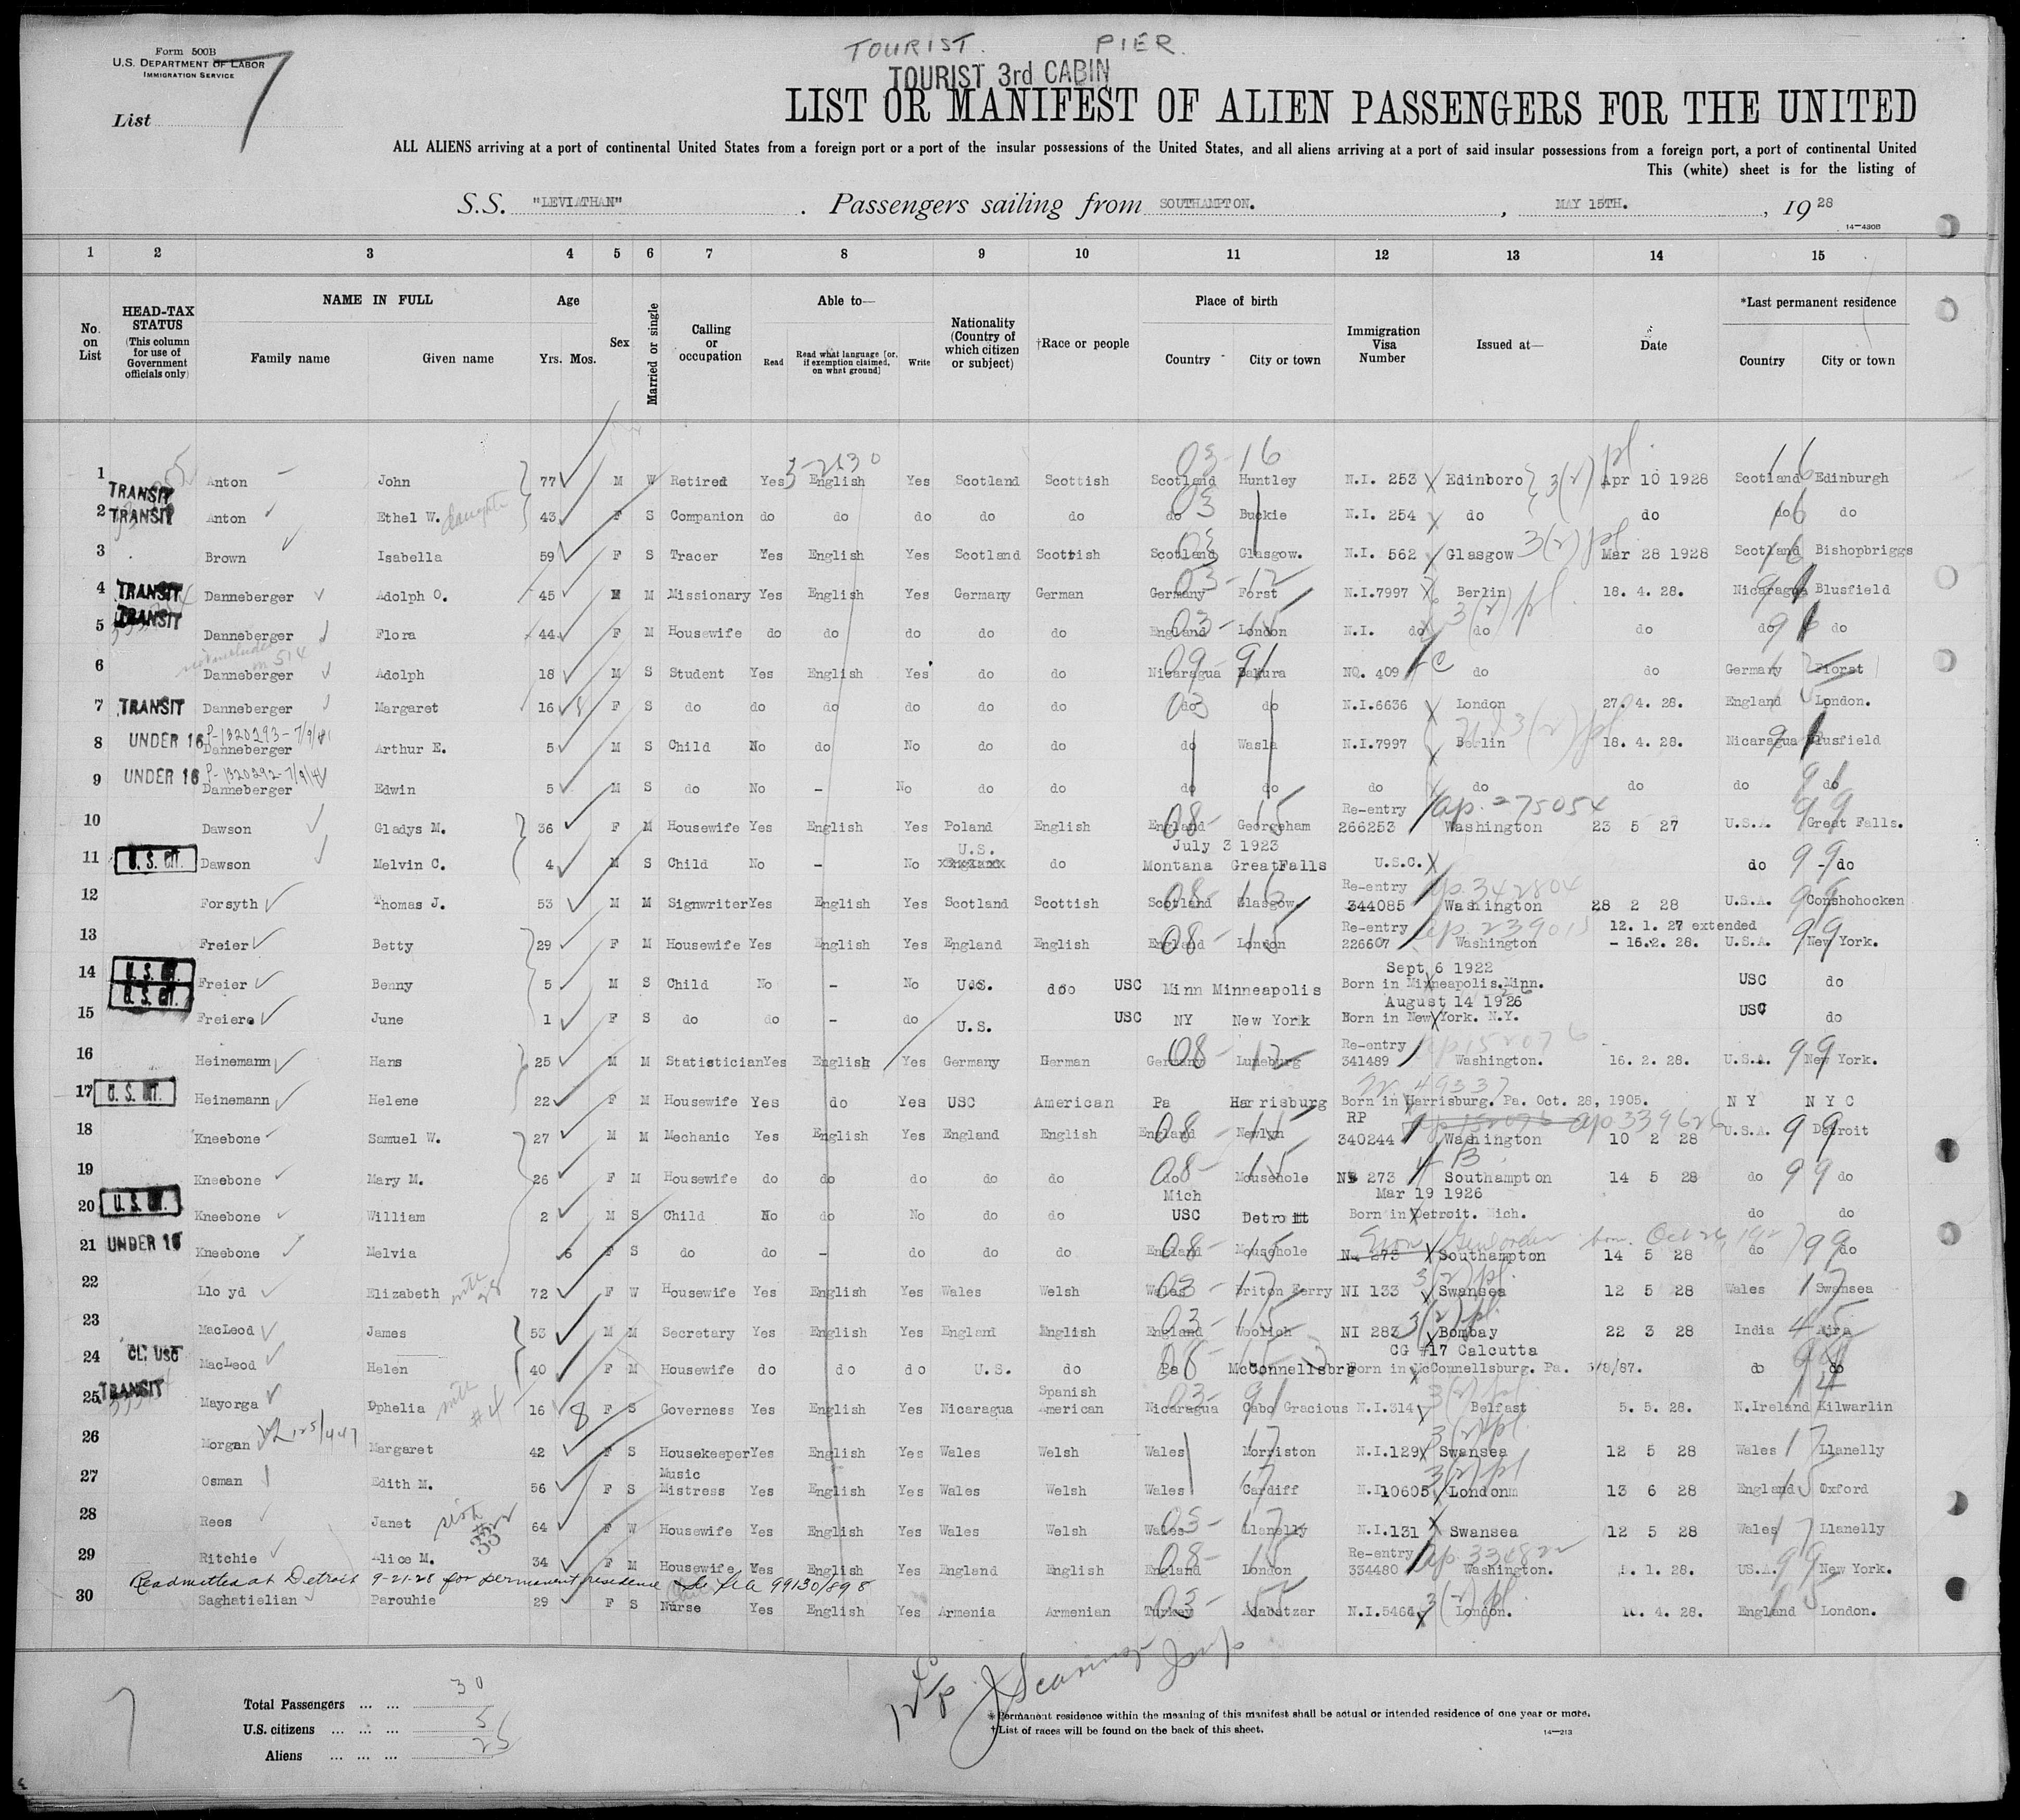 TOURIST. PIER.
Form 500B
U.S. DEPARTMENT OF LABOR
IMMIGRATION SERVICE
TOURIST 3rd CABIN
LIST OR MANIFEST OF ALIEN PASSENGERS FOR THE UNITED
List 7
ALL ALIENS arriving at a port of continental United States from a foreign port or a port of the insular possessions of the United States, and all aliens arriving at a port of said insular possessions from a foreign port, a port of continental United
This (white) sheet is for the listing of
S.S. "LEVIATHAN" . Passengers sailing from SOUTHAMPTON. , MAY 15TH. , 19 28
14—430B
1 2 3 4 5 6 7 8 9 10 11 12 13 14 15
No. on List HEAD-TAX STATUS (This column for use of Government officials only) NAME IN FULL Family name Given name Age Yrs. Mos. Sex Married or single Calling or occupation Able to— Read Read what language [or, if exemption claimed, on what ground] Write Nationality (Country of which citizen or subject) †Race or people Place of birth Country City or town Immigration Visa Number Issued at— Date *Last permanent residence Country City or town
1 TRANSIT Anton John 77 M W Retired Yes English Yes Scotland Scottish Scotland Huntley N.I. 253 Edinboro 3(2) pl. Apr 10 1928 Scotland Edinburgh
2 TRANSIT Anton Ethel W. daughter 43 F S Companion do do do do do do Buckie N.I. 254 do do do do
3 Brown Isabella 59 F S Tracer Yes English Yes Scotland Scottish Scotland Glasgow. N.I. 562 Glasgow 3(2) pl Mar 28 1928 Scotland Bishopbriggs
4 TRANSIT Danneberger Adolph O. 45 M M Missionary Yes English Yes Germany German Germany Forst N.I.7997 Berlin 18. 4. 28. Nicaragua Blusfield
5 TRANSIT Danneberger Flora 44 F M Housewife do do do do do England London N.I. do do do do do
6 Danneberger Adolph 18 M S Student Yes English Yes do do Nicaragua Bakura NQ. 409 do do Germany Fiorst
7 TRANSIT Danneberger Margaret 16 F S do do do do do do do do N.I.6636 London 27. 4. 28. England London.
8 UNDER 16 P-1320293- Danneberger Arthur E. 5 M S Child No do No do do do Wasla N.I.7997 Berlin 18. 4. 28. Nicaragua Blusfield
9 UNDER 16 P-1320292- Danneberger Edwin 5 M S do No - No do do do do do do do do do
10 Dawson Gladys M. 36 F M Housewife Yes English Yes Poland English England Georgeham Re-entry 266253 ap. 275054 Washington 23 5 27 U.S.A. Great Falls.
11 U.S. CIT. Dawson Melvin C. 4 M S Child No - No U.S. do July 3 1923 Montana GreatFalls U.S.C. do do
12 Forsyth Thomas J. 53 M M Signwriter Yes English Yes Scotland Scottish Scotland Glasgow. Re-entry 344085 ap. 342804 Washington 28 2 28 U.S.A. Conshohocken
13 Freier Betty 29 F M Housewife Yes English Yes England English England London Re-entry 226607 ap. 239015 Washington 12. 1. 27 extended - 16.2. 28. U.S.A. New York.
14 U.S. CIT. Freier Benny 5 M S Child No - No U.S. do USC Minn Minneapolis Sept 6 1922 Born in Minneapolis.Minn. USC do
15 U.S. CIT. Freiere June 1 F S do do - do U.S. USC NY New York August 14 1926 Born in New York. N.Y. USC do
16 Heinemann Hans 25 M M Statistician Yes English Yes Germany German Germany Luneburg Re-entry 341489 Washington. 16. 2. 28. U.S.A. New York.
17 U.S. CIT. Heinemann Helene 22 F M Housewife Yes do Yes USC American Pa Harrisburg Born in Harrisburg. Pa. Oct. 28, 1905. N Y N Y C
18 Kneebone Samuel W. 27 M M Mechanic Yes English Yes England English England Newlyn RP 340244 ap 339626 Washington 10 2 28 U.S.A. Detroit
19 Kneebone Mary M. 26 F M Housewife do do do do do do Mousehole 273 Southampton 14 5 28 do do
20 U.S. CIT. Kneebone William 2 M S Child No do No do do Mich USC Detroit Mar 19 1926 Born in Detroit. Mich. do do
21 UNDER 16 Kneebone Melvia 6 F S do do - do do do England Mousehole 273 Southampton 14 5 28 do do
22 Lloyd Elizabeth 72 F W Housewife Yes English Yes Wales Welsh Wales Briton Ferry NI 133 Swansea 12 5 28 Wales Swansea
23 MacLeod James 53 M M Secretary Yes English Yes England English England Woolich NI 283 Bombay 22 3 28 India Ajra
24 CL. USC MacLeod Helen 40 F M Housewife do do do U.S. do Pa McConnellsbrg CG #17 Calcutta Born in McConnellsburg. Pa. do do
25 TRANSIT Mayorga Ophelia with #4 16 8 F S Governess Yes English Yes Nicaragua Spanish American Nicaragua Cabo Gracious N.I.314 Belfast 5. 5. 28. N.Ireland Kilwarlin
26 Morgan Margaret 42 F S Housekeeper Yes English Yes Wales Welsh Wales Morriston N.I.129 Swansea 12 5 28 Wales Llanelly
27 Osman Edith M. 56 F S Music Mistress Yes English Yes Wales Welsh Wales Cardiff N.I.10605 London 13 6 28 England Oxford
28 Rees Janet 64 F W Housewife Yes English Yes Wales Welsh Wales Llanelly N.I.131 Swansea 12 5 28 Wales Llanelly
29 Ritchie Alice M. 34 F M Housewife Yes English Yes England English England London Re-entry 334480 Washington. 5. 1. 28. US.A. New York.
Readmitted at Detroit 9-21-28 for permanent residence 99130/898
30 Saghatielian Parouhie 29 F S Nurse Yes English Yes Armenia Armenian Turkey Adabatzar N.I.5464 London. 4. 28. England London.
Total Passengers ... ... 30
U.S. citizens ... ... ... 5
Aliens ... ... ... 25
*Permanent residence within the meaning of this manifest shall be actual or intended residence of one year or more.
†List of races will be found on the back of this sheet.
14—213
7